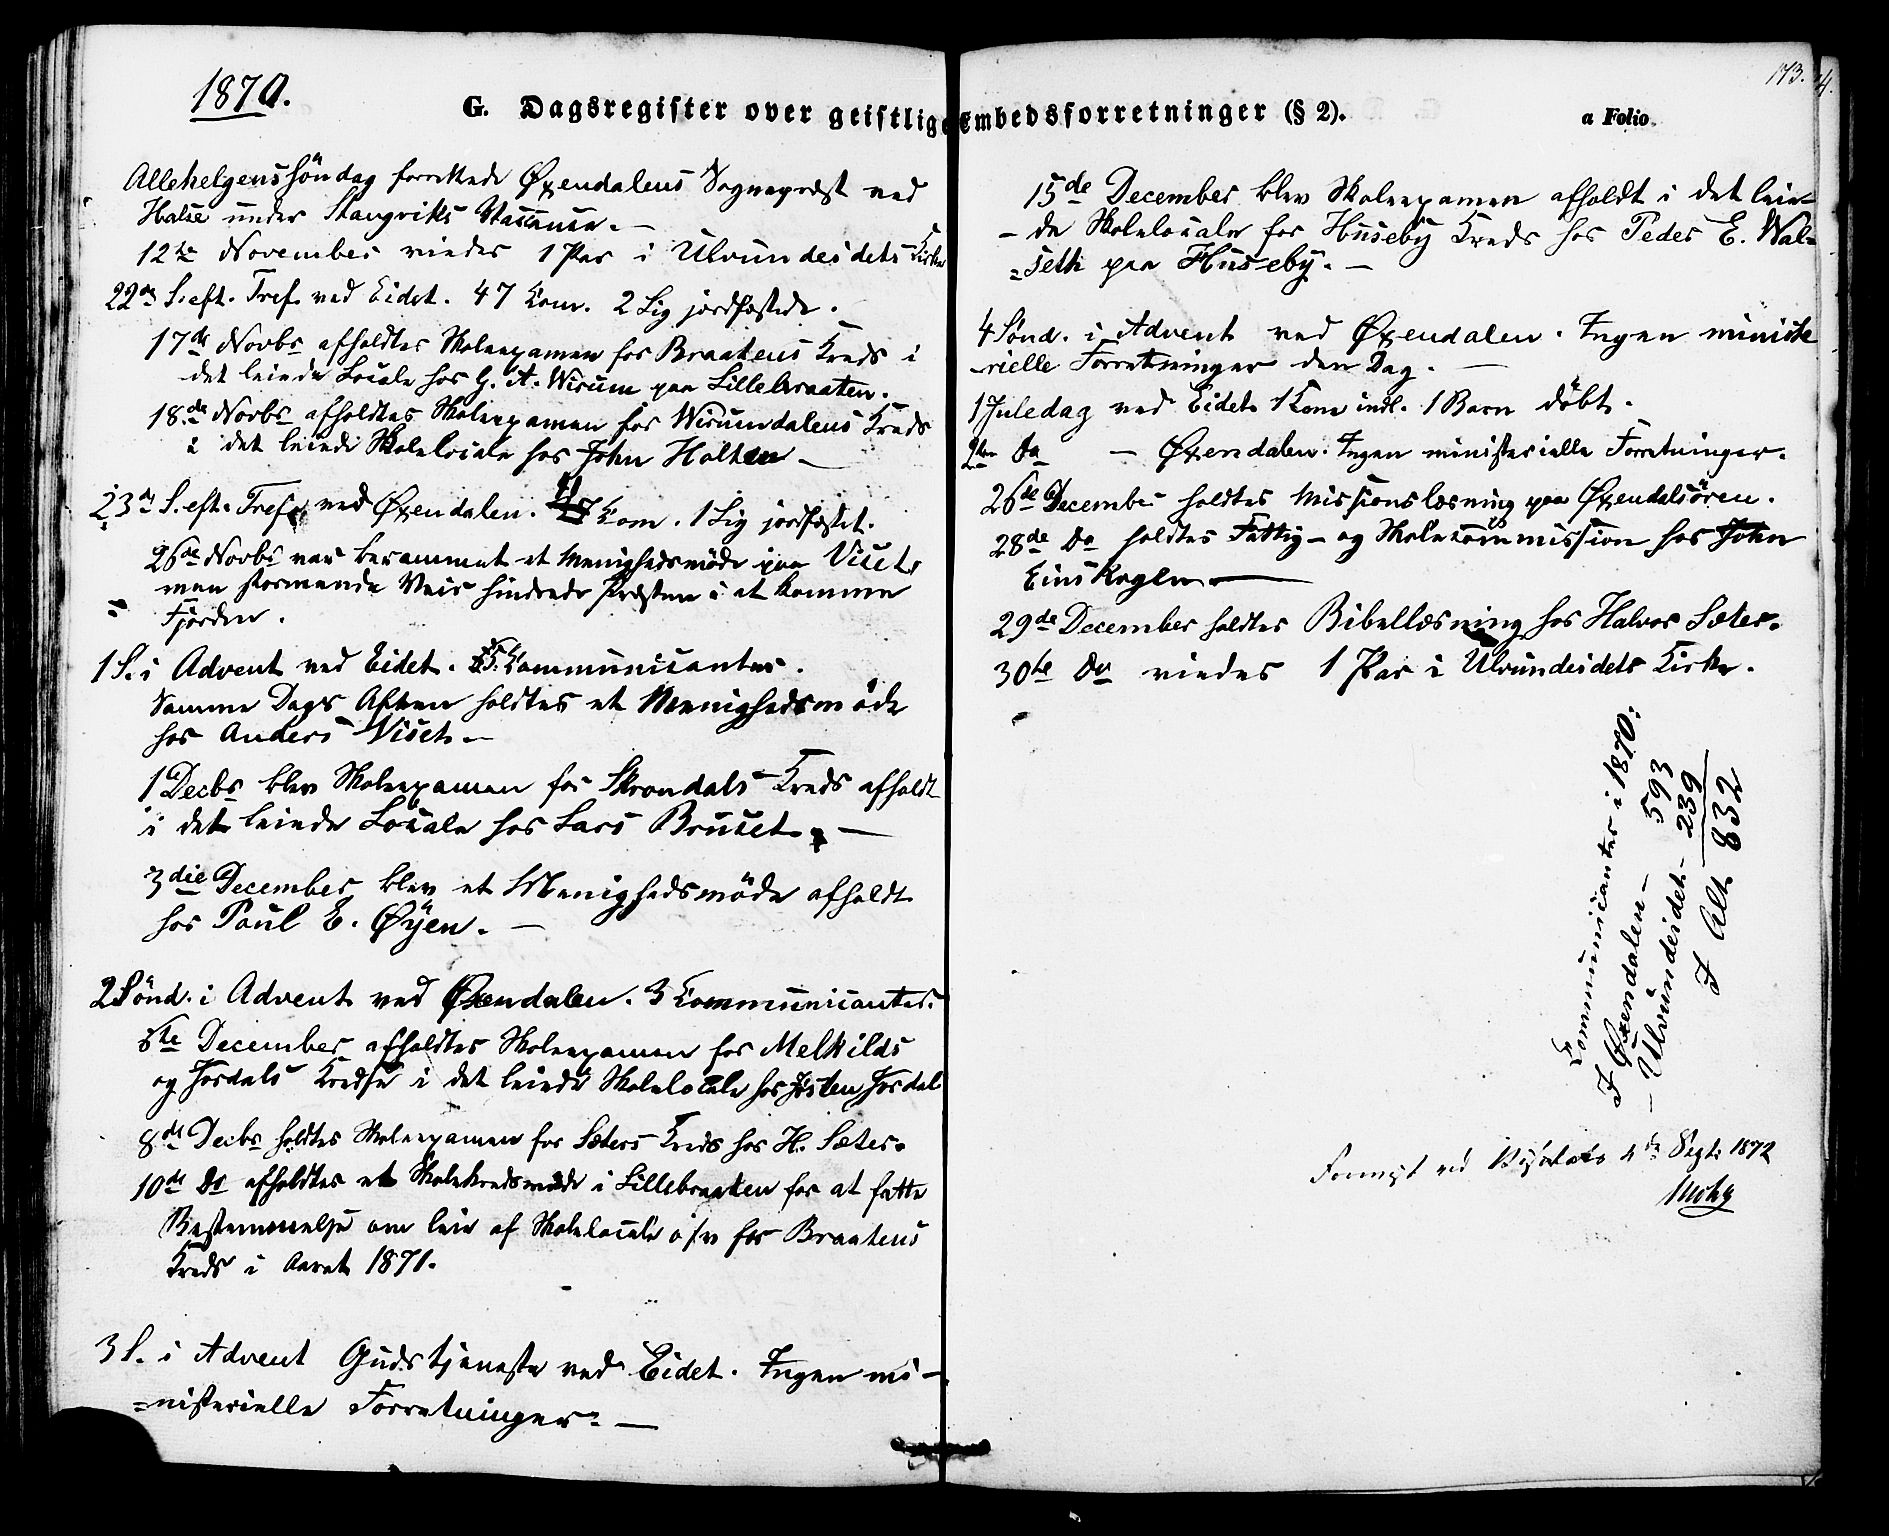 1870.
G. Dagsregister over geistlige Embedsforretninger (§ 2).
a Folio
173.
4.
Allehelgenssöndag forrettede Øxendalens Sognepræst ved
Halse under Stangviks Vacance. —
12te November viedes 1 Par i Ulvundeidets Kirke
22de S. eft. Tref. ved Eidet. 47 Com. 2 Lig jordfæstede.
17de Novbr afholdtes Skoleexamen for Braatens Kreds i
det leiede Locale hos G. A. Wirum paa Lillebraaten.
18.de Novbr afholdtes Skoleexamen for Wirumdalens Kreds
i det leiede Skolelocale hos John Holten —
23de S. eft. Tref. ved Øxendalen. Com. 1 Lig jordfæstet.
26de Novbr var berammet et Menighedsmöde paa Viset,
men stormende Veir hindrede Præsten i at komme
= Fjorden.
1 S. i Advent ved Eidet. Communicanter.
Samme Dags Aften holdtes et Menighedsmöde
hos Anders Viset. —
1 Decbr blev Skoleexamen for Skrondals Kreds afholdt
i det leiede Locale hos Lars Bruset. —
3die December blev et Menighedsmöde afholdt
hos Paul E. Øyen. —
2 Sönd. i Advent ved Øxendalen. 3 Communicanter.
6te December afholdtes Skoleexamen for Melkilds
og Jordals Kredse i det leiede Skolelocale hos Josten Jordal
8de Decbr holdtes Skoleexamen for Sæters Kreds hos H. Sæter.
10de Do afholdtes et Skolekredsmöde i Lillebraaten for at fatte
Bestemmelse om leie af Skolelocale o/v for Braatens
Kreds i Aaret 1871.
3 S. i Advent Gudstjeneste ved Eidet. Ingen mi-
=nisterielle Forretninger. —
15de December blev Skoleexamen afholdt i det leie-
- de Skolelocale for Huseby Kreds hos Peder E. Wal=
=seth paa Huseby. —
4 Sönd. i Advent ved Øxendalen. Ingen ministe
-rielle Forretninger den Dag. —
1 Juledag ved Eidet 1 Kone indl. 1 Barn döbt.
2den Do — Øxendalen. Ingen ministerielle Forretninger.
26de December holdtes Missionslæsning paa Øxendalsören.
28de Do holdtes Fattig- og Skolecommission hos John
Einskaglen —
29de December holdtes Bibellæsning hos Halvor Sæter.
30te Do viedes 1 Par i Ulvundeidets Kirke.
Communicanter i 1870:
I Øxendalen - 593
- Ulvundeidet - 239
I Alt 832
ved 4de Sept. 1872